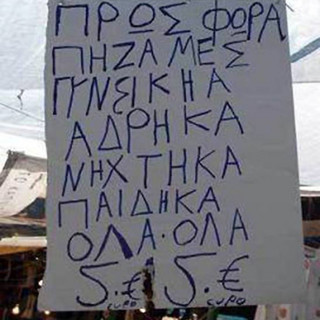 ΠΡΩΣ ΦΟΡΑ
ΠΗΖΑΜΕΣ
ΓΥΝΕΙΚΗΑ
ΑΔΡΗΚΑ
ΝΗΧΤΗΚΑ
ΠΑΙΔΗΚΑ
ΟΛΑ·ΟΛΑ
5.€ 5.€
ευρο ευρο